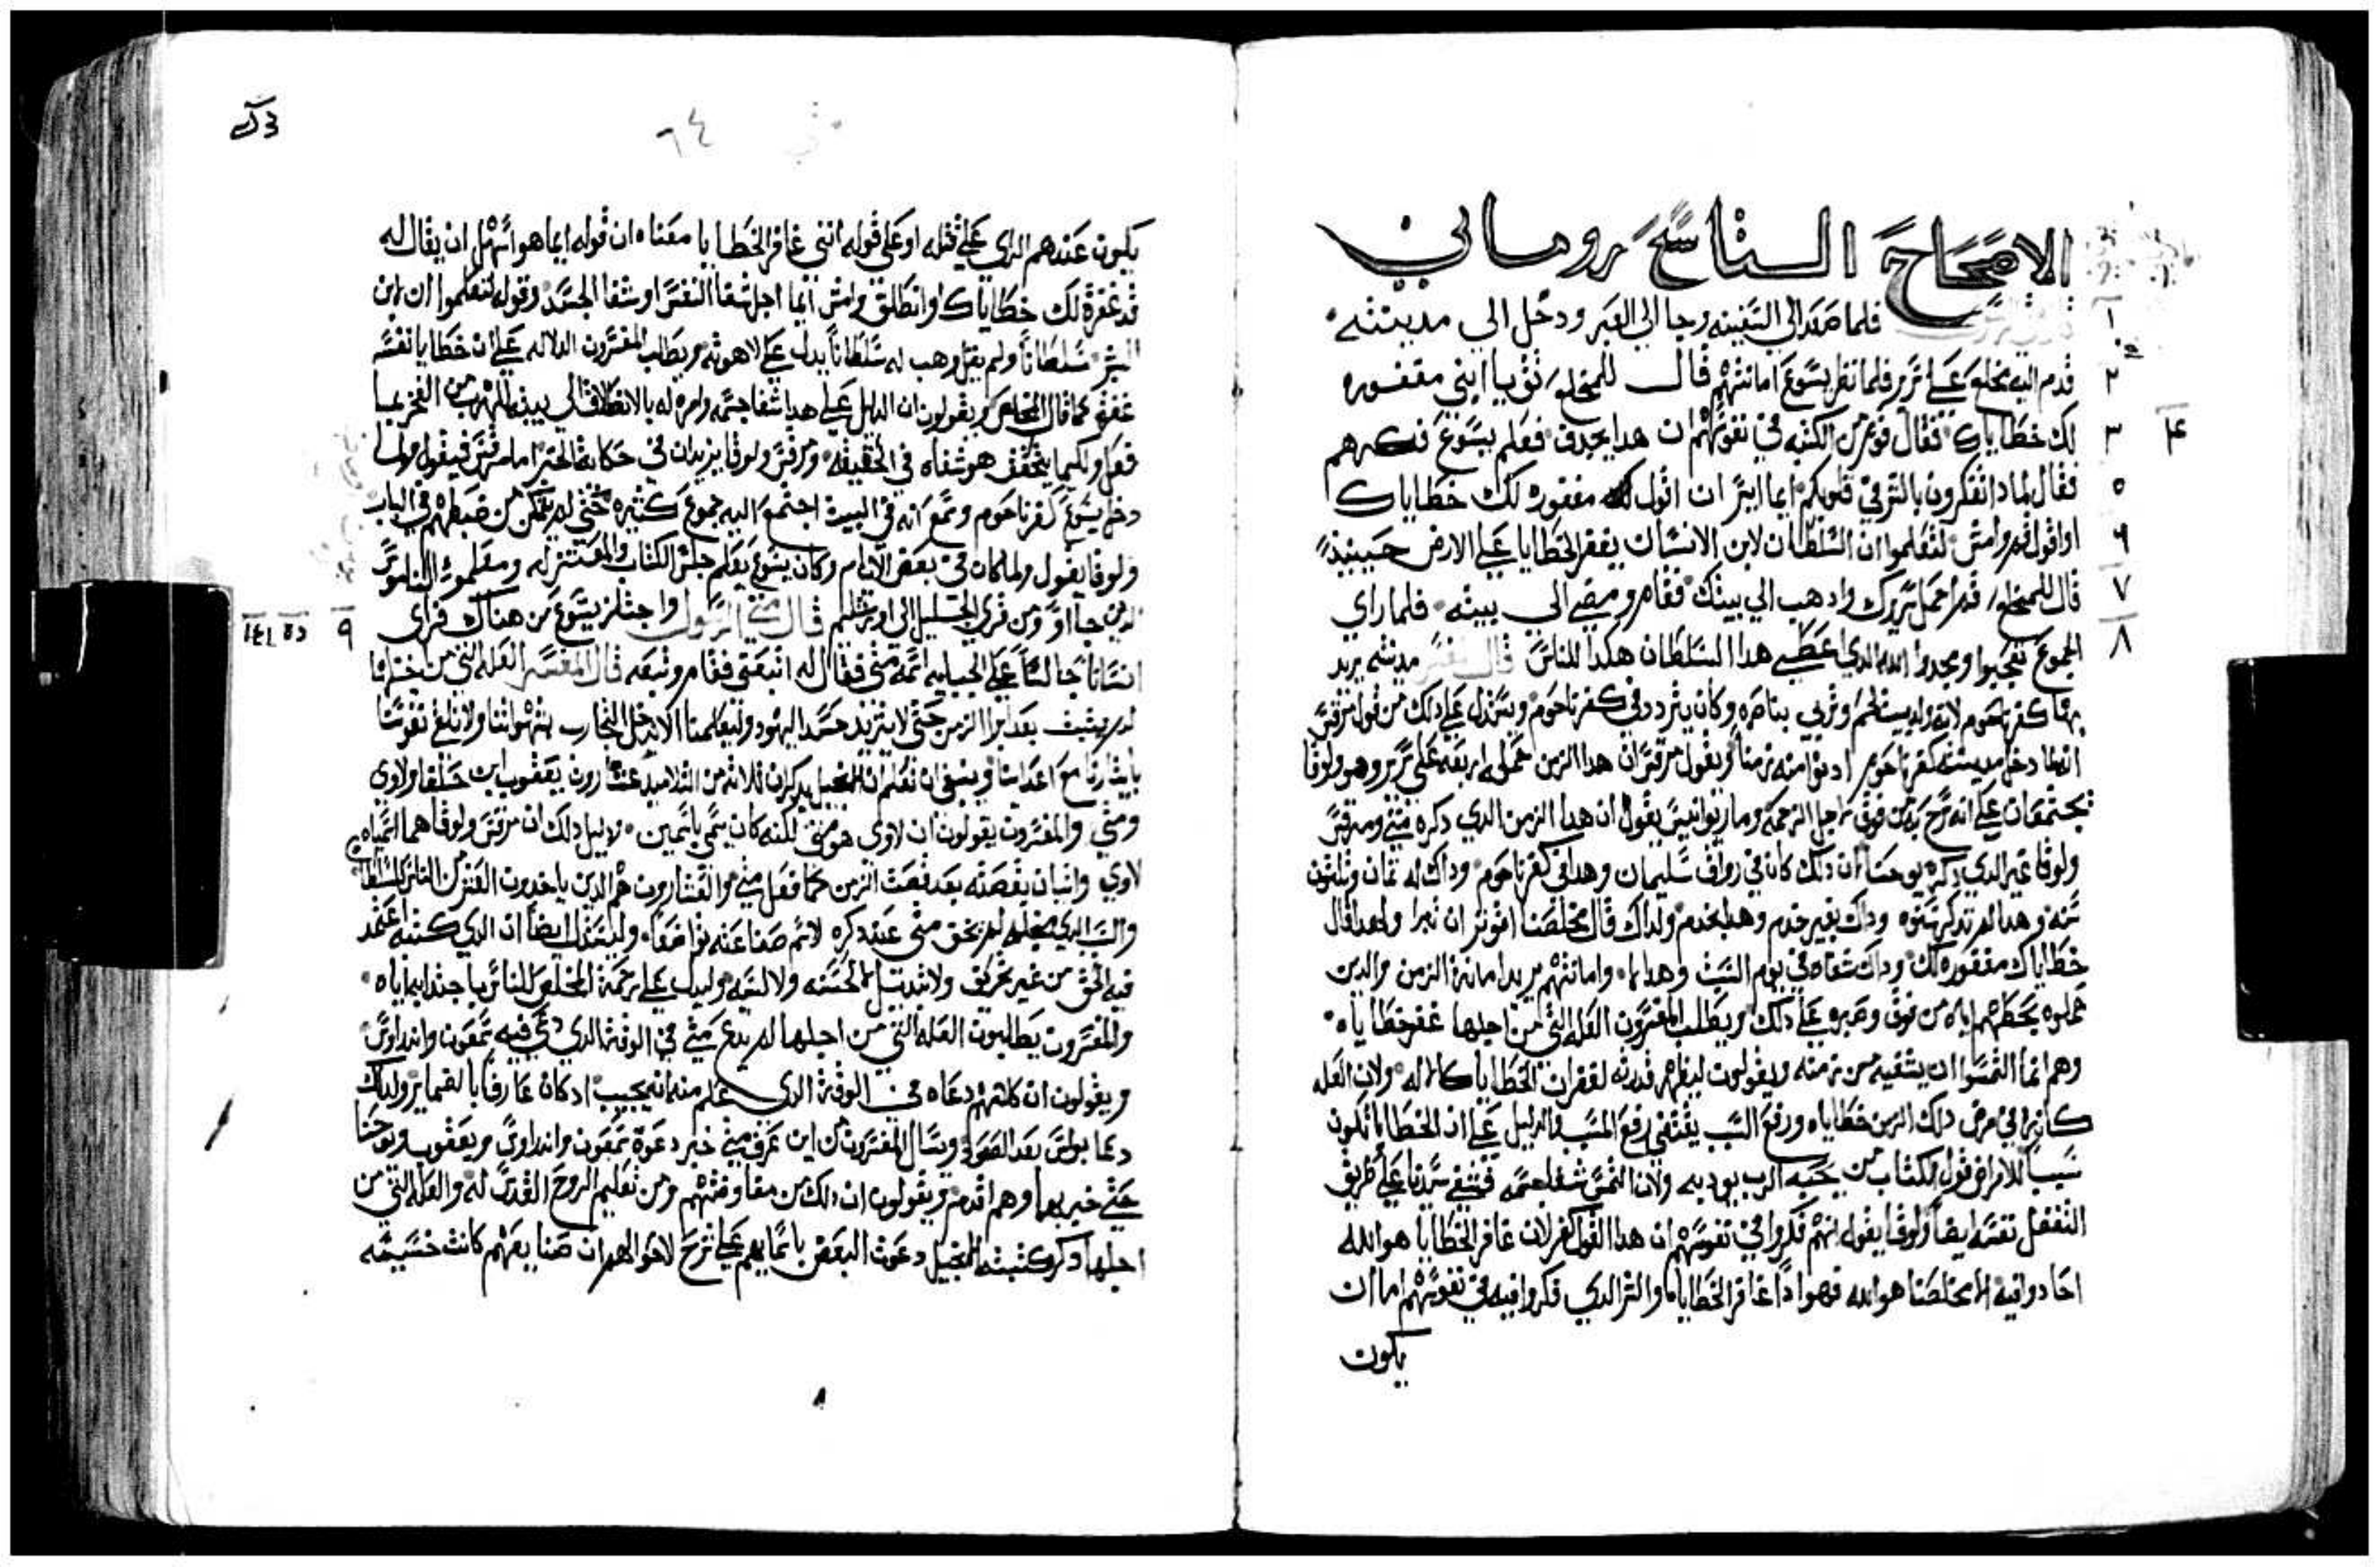 الاصحاح التاسع روماني
فلما صعد الى السفينه وجا الى العبر ودخل الى مدينته
قدم اليه مخلع على سرير فلما نظر يسوع امانتهم قال للمخلع ثق يا ابني مغفوره
لك خطاياك فقال قوم من الكتبه في نفوسهم ان هدا يجدف فعلم يسوع فكرهم
فقال لمادا تفكرون بالشر في قلوبكم ايما ايسر ان اقول لك مغفوره لك خطاياك
او اقول قم وامش لتعلموا ان السلطان لابن الانسان يغفر الخطايا على الارض حينيد
قال للمخلع قم احمل سريرك وادهب الي بيتك فقام ومضي الي بيته فلما راي
الجموع تعجبوا ومجدوا الله الدي اعطى هدا السلطان هكدا للناس قال المفسر مدينته يريد
بها كفرناحوم لانه ولد ببيت لحم وتربي بناصره وكان يتردد في كفرناحوم ويستدل على دلك من قول مرقس
انه لما دخل مدينته كفرناحوم ادنوا منه زمنا ويقول مرقس ان هدا الزمن حملوه اربعه على سرير وهو ولوقا
يجتمعان على انه من فوق من اجل الزحمه وماريوانيس يقول ان هدا الزمن الدي دكره متي ومرقس
ولوقا غير الدي دكره يوحنا ان دلك كان في رواق سليمان وهدا في كفرناحوم وداك له تمان وتلتون
سنه وهدا لم تدكر سنوه وداك بغير خدم وهدا بخدم ولداك قال مخلصنا اتوتر ان تبرا ولهدا قال
خطاياك مغفوره لك وداك شفاه في يوم السبت وهدا لا وامانتهم يريد امانة الزمن والدين
حملوه بحطهم اياه من فوق وصبره على دلك ويطلب المفسرون العله التي من اجلها غفر خطاياه
وهم انما التمسوا ان يشفيه من زمنه ويقولون ليظهر قدرته لغفران الخطايا كالاله ولان العله
كانت في مرض دلك الزمن خطاياه ورفع السبب يقتضي رفع المسبب والدليل على ان الخطايا تكون
سببا للامراض قول الكتاب من يحبه الرب يودبه ولان التمس شفا جسمه فشفي سيدنا على طريق
التفضل نفسه ايضا ولوقا يقول انهم فكروا في نفوسهم ان هدا القول كفر لان غافر الخطايا هو الله
اجادوا فيه الا مخلصنا هو الله فهو ادا غافر الخطايا والشر الدي فكروا فيه في نفوسهم اما ان
يكون
٦٤
يكون عندهم الراي على قتله او على قوله انني غافر الخطايا معناه ان قوله ايما هو اسهل ان يقال له
قد غفرة لك خطاياك او انطلق وامش ايما اجل شفا النفس او شفا الجسد وقوله لتعلموا ان لابن
البشر سلطانا ولم يقل وهب له سلطانا يدل على لاهوته ويطلب المفسرون الدلاله على ان خطايا نفسه
غفرة كما قال المخلص ويقولون ان الدليل على هدا شفا جسمه وامره له بالانطلاق الي بيته للهرب من الفخر بما
فعل ولكيما يتحقق هو شفاه في الحقيقه ومرقس ولوقا يزيدان في حكاية الخبر اما مرقس فيقول ولما
دخل يسوع كفرناحوم وسمع انه في البيت اجتمع اليه جموع كتيره حتي لم يتمكن من ضبطهم في الباب
ولوقا يقول ولما كان في بعض الايام وكان يسوع يعلم جلس الكتاب والمعتزله ومعلموا الناموس
الدين جااوا من قري الجليل الي اورشليم قال متي الرسول واجتاز يسوع من هناك فراي
انسانا جالسا على الجبايه اسمه متي فقال له اتبعني فقام وتبعه قال المفسر العله التي من اجلها
لم يثبت بعد ابرا الزمن حتي لا يتزيد حسد اليهود وليعلمنا الا ندخل التجارب بشهواتنا ولا نلقي نفوسنا
بايثارنا مع اعداينا وينبغي ان تعلم ان الانجيل يدكر ان ثلاثه من التلاميد عشارون يعقوب ابن حلفا ولاوي
ومتي والمفسرون يقولون ان لاوي هو متي لكنه كان يسمي باسمين ودليل دلك ان مرقس ولوقا هما اسمياه
لاوي واتيان بقصته بعد قصة الزمن كما فعل متي والعشارون هم الدين ياخدون العشر من الناس للسلطان
والسبب الدي لم يخف متي عند دكره لاسم صناعته تواضعا وليستدل ايضا ان الدي كتبه اعتمد
فيه الحق من غير تحريف ولا تبديل لا لحسنه ولا لسيه وليدل على رحمة المخلص للناس باجتدابه اياه
والمفسرون يطلبون العله التي من اجلها لم يدع متي في الوقت الدي دعي فيه سمعون واندراوس
ويقولون ان كلا منهم دعاه في الوقة الدي علم منه انه يجيب اد كان عارفا بالضماير ولدلك
دعا بولس بعد الصعود ويسال المفسرون من اين عرف متي خبر دعوة سمعون واندراوس ويعقوب ويوحنا
حتي خبر بها وهم اقدم ويقولون ان دلك من مفاوضتهم ومن تعليم الروح القدس له والعله التي من
اجلها دكر كتبة الانجيل دعوت البعض باسمايهم على شرح لاحوالهم ان صنايعهم كانت خسيسه